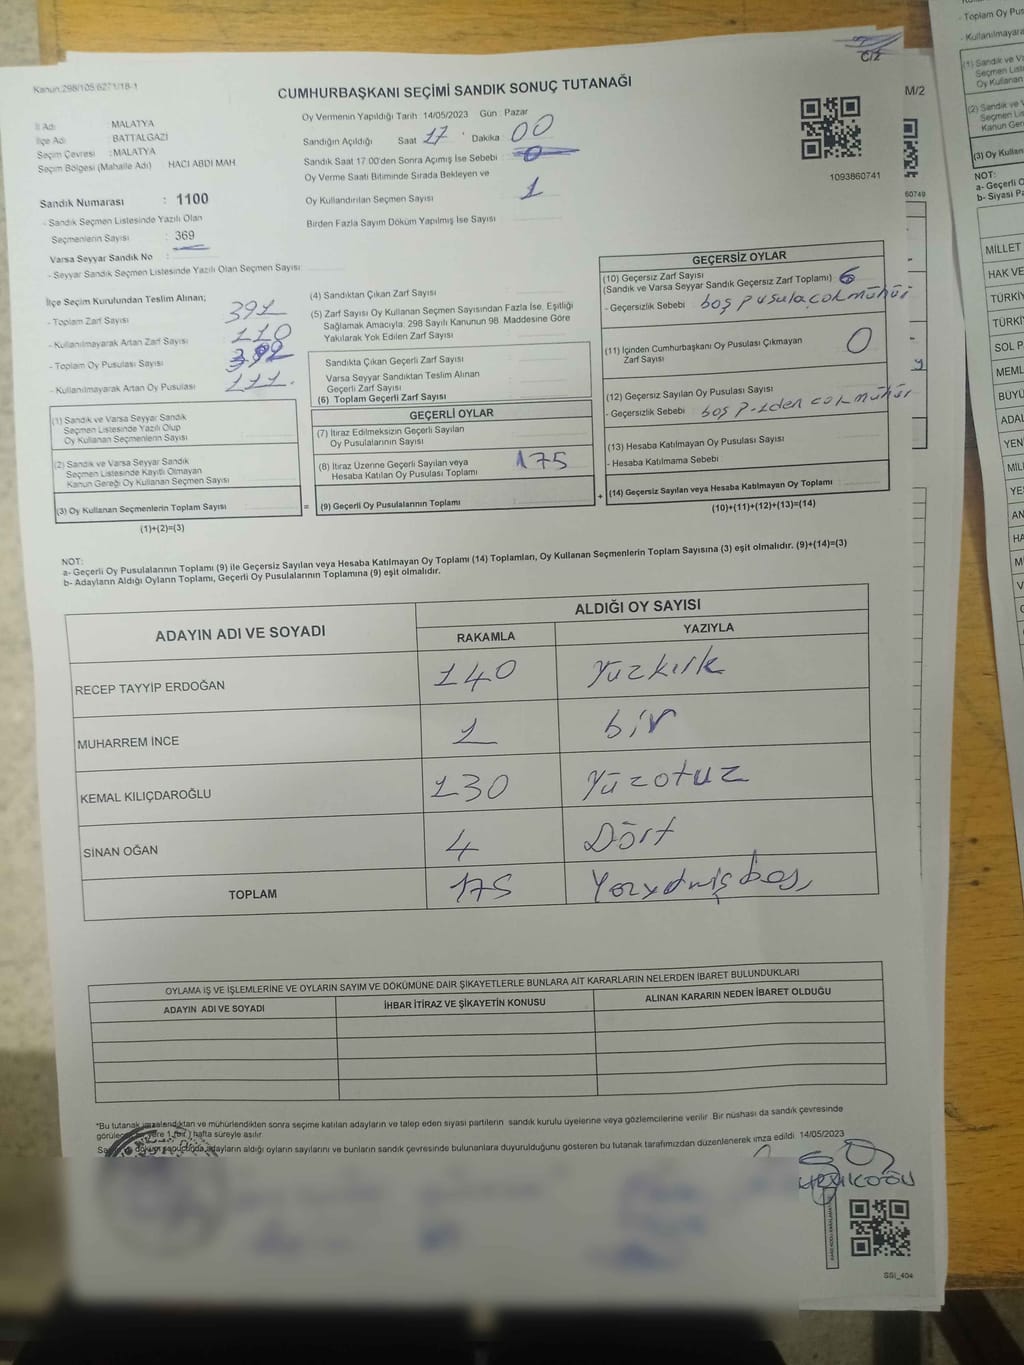 Kanun:298/105;6271/18-1
CUMHURBAŞKANI SEÇİMİ SANDIK SONUÇ TUTANAĞI
İl Adı : MALATYA
İlçe Adı : BATTALGAZİ
Seçim Çevresi : MALATYA
Seçim Bölgesi (Mahalle Adı) : HACI ABDİ MAH
Sandık Numarası : 1100
- Sandık Seçmen Listesinde Yazılı Olan
Seçmenlerin Sayısı : 369
Varsa Seyyar Sandık No :
- Seyyar Sandık Seçmen Listesinde Yazılı Olan Seçmen Sayısı:
Oy Vermenin Yapıldığı Tarih 14/05/2023 Gün : Pazar
Sandığın Açıldığı Saat 17 Dakika 00
Sandık Saat 17.00'den Sonra Açımış İse Sebebi 0
Oy Verme Saati Bitiminde Sırada Bekleyen ve
Oy Kullandırılan Seçmen Sayısı 1
Birden Fazla Sayım Döküm Yapılmış İse Sayısı
1093860741
İlçe Seçim Kurulundan Teslim Alınan;
- Toplam Zarf Sayısı 391
- Kullanılmayarak Artan Zarf Sayısı 110
- Toplam Oy Pusulası Sayısı 392
- Kullanılmayarak Artan Oy Pusulası 111.
(1) Sandık ve Varsa Seyyar Sandık
Seçmen Listesinde Yazılı Olup
Oy Kullanan Seçmenlerin Sayısı
(2) Sandık ve Varsa Seyyar Sandık
Seçmen Listesinde Kayıtlı Olmayan
Kanun Gereği Oy Kullanan Seçmen Sayısı
(3) Oy Kullanan Seçmenlerin Toplam Sayısı
(1)+(2)=(3)
(4) Sandıktan Çıkan Zarf Sayısı
(5) Zarf Sayısı Oy Kullanan Seçmen Sayısından Fazla İse, Eşitliği
Sağlamak Amacıyla; 298 Sayılı Kanunun 98. Maddesine Göre
Yakılarak Yok Edilen Zarf Sayısı
Sandıkta Çıkan Geçerli Zarf Sayısı
Varsa Seyyar Sandıktan Teslim Alınan
Geçerli Zarf Sayısı
(6) Toplam Geçerli Zarf Sayısı
GEÇERLİ OYLAR
(7) İtiraz Edilmeksizin Geçerli Sayılan
Oy Pusulalarının Sayısı
(8) İtiraz Üzerine Geçerli Sayılan veya
Hesaba Katılan Oy Pusulası Toplamı 175
= (9) Geçerli Oy Pusulalarının Toplamı
GEÇERSİZ OYLAR
(10) Geçersiz Zarf Sayısı
(Sandık ve Varsa Seyyar Sandık Geçersiz Zarf Toplamı) 6
- Geçersizlik Sebebi boş pusula çok mühür
(11) İçinden Cumhurbaşkanı Oy Pusulası Çıkmayan
Zarf Sayısı 0
(12) Geçersiz Sayılan Oy Pusulası Sayısı
- Geçersizlik Sebebi boş çok mühür
(13) Hesaba Katılmayan Oy Pusulası Sayısı
- Hesaba Katılmama Sebebi
+ (14) Geçersiz Sayılan veya Hesaba Katılmayan Oy Toplamı
(10)+(11)+(12)+(13)=(14)
NOT:
a- Geçerli Oy Pusulalarının Toplamı (9) ile Geçersiz Sayılan veya Hesaba Katılmayan Oy Toplamı (14) Toplamları, Oy Kullanan Seçmenlerin Toplam Sayısına (3) eşit olmalıdır. (9)+(14)=(3)
b- Adayların Aldığı Oyların Toplamı, Geçerli Oy Pusulalarının Toplamına (9) eşit olmalıdır.
ADAYIN ADI VE SOYADI
ALDIĞI OY SAYISI
RAKAMLA YAZIYLA
RECEP TAYYİP ERDOĞAN 140 Yüzkırk
MUHARREM İNCE 1 bir
KEMAL KILIÇDAROĞLU 130 Yüzotuz
SİNAN OĞAN 4 Dört
TOPLAM 175
OYLAMA İŞ VE İŞLEMLERİNE VE OYLARIN SAYIM VE DÖKÜMÜNE DAİR ŞİKAYETLERLE BUNLARA AİT KARARLARIN NELERDEN İBARET BULUNDUKLARI
ADAYIN ADI VE SOYADI İHBAR İTİRAZ VE ŞİKAYETİN KONUSU ALINAN KARARIN NEDEN İBARET OLDUĞU
*Bu tutanak imzalendıktan ve mühürlendikten sonra seçime katılan adayların ve talep eden siyasi partilerin sandık kurulu üyelerine veya gözlemcilerine verilir. Bir nüshası da sandık çevresinde
hafta süreyle asılır.
adayların aldığı oyların sayılarını ve bunların sandık çevresinde bulunanlara duyurulduğunu gösteren bu tutanak tarafımızdan düzenlenerek imza edildi. 14/05/2023
SSI_404
M/2
60749
- Toplam Oy Pus
- Kullanılmayara
(1) Sandık ve Va
Seçmen Liste
Oy Kullanan
(2) Sandık ve
Seçmen Lis
Kanun Ger
(3) Oy Kullan
NOT:
a- Geçerli O
b- Siyasi Pa
MİLLET
HAK VE
TÜRKİY
TÜRKİ
SOL P
MEML
BÜYÜ
ADAL
YEN
MİL
YE
AN
HA